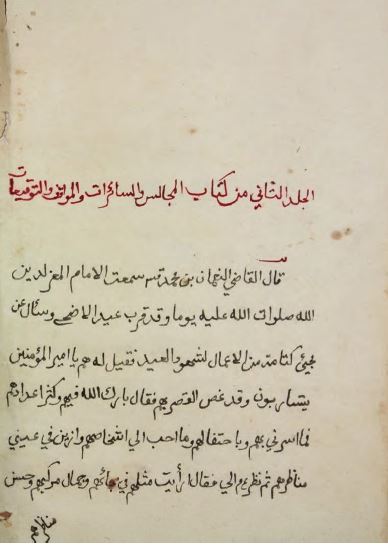 الجلد الثاني من كتاب المجالس والسائرات والمواقف والتوقيعات
قال القاضي النعمان بن محمد قس سمعت الامام المعز لدين
الله صلوات الله عليه يوما وقد قرب عيد الاضحى وسأل عن
مجئ كتامة من الاعمال لشهود العيد فقيل له هم يا امير المؤمنين
يتسربون وقد غص القصر بهم فقال بارك الله فيهم وكثر اعدادهم
فما اسرني بهم وباحتفالهم وما احب الي اشخاصهم وازين في عيني
مناظرهم ثم نظر الي فقال أرأيت مثلهم في وجمال مراكبهم وحسن
مناظرهم